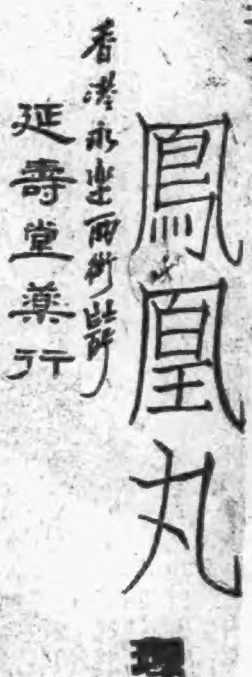 鳳凰丸
香港永樂西街
延壽堂藥行